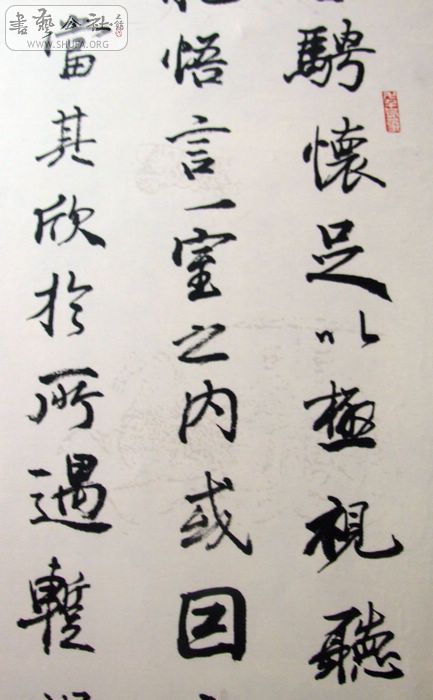 書藝公社
WWW.SHUFA.ORG
騁懷足以極視聽
悟言一室之内或因
當其欣於所遇蹔